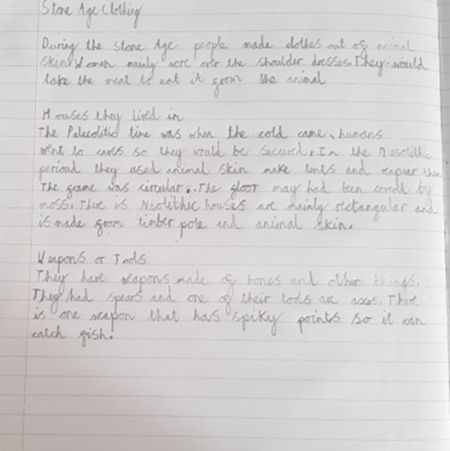 Stone Age Clothing
During the Stone Age people made clothes out of animal
skin Women mainly wore over the shoulder dresses. They would
take the meat to eat it from the animal
Houses they lived in
The Palaeolitic time was when the cold came, humans
went to caves so they would be secured. In the Mesolithic
period they used animal skin make tents and
The frame was circular. The floor may had been coverd by
moss. There is Neolithic houses are mainly rectangular and
is made from timber pole and animal skin.
Weapons or Tools
They have weapons made of bones and other things.
They had spears and one of their tools are axes. There
is one weapon that has spiky points so it can
catch fish.